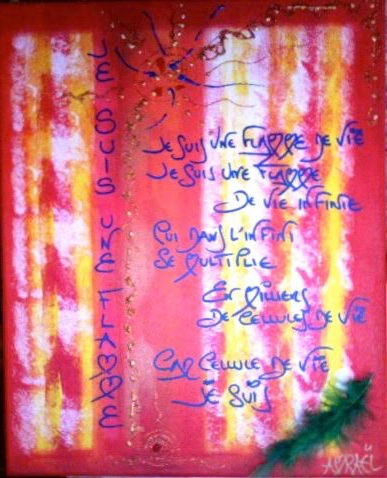 JE SUIS UNE FLAMME
Je suis une flamme de vie
Je suis une flamme
De vie infinie
Qui dans l'infini
Se multiplie
En milliers
De cellules de vie
Car cellule de vie
Je suis